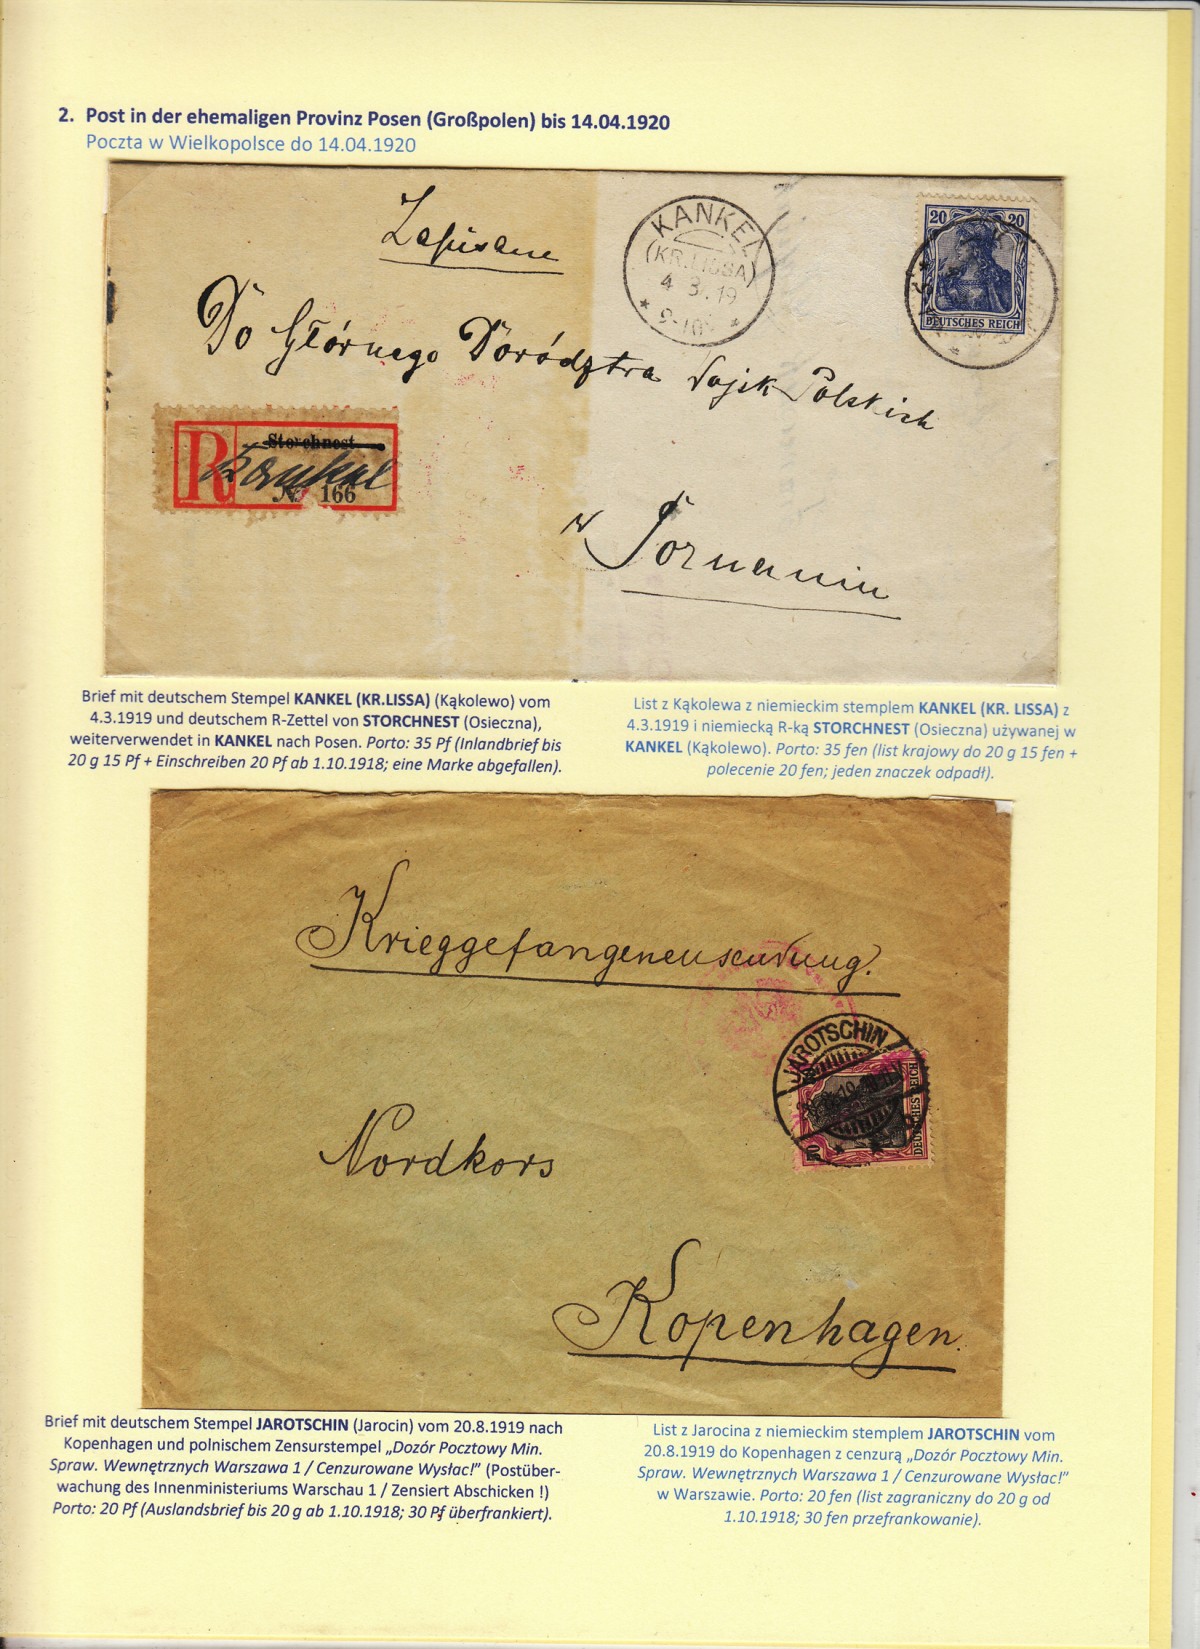 2. Post in der ehemaligen Provinz Posen (Großpolen) bis 14.04.1920
Poczta w Wielkopolsce do 14.04.1920
Zapisane
KANKEL
(KR.LISSA)
4 3. 19
9-10V
20 20
DEUTSCHES REICH
Do Głórnego Dorództra Wojsk Polskich
R
Storchnest
Kankel
№ 166
w Poznaniu
Brief mit deutschem Stempel KANKEL (KR.LISSA) (Kąkolewo) vom
4.3.1919 und deutschem R-Zettel von STORCHNEST (Osieczna),
weiterverwendet in KANKEL nach Posen. Porto: 35 Pf (Inlandbrief bis
20 g 15 Pf + Einschreiben 20 Pf ab 1.10.1918; eine Marke abgefallen).
List z Kąkolewa z niemieckim stemplem KANKEL (KR. LISSA) z
4.3.1919 i niemiecką R-ką STORCHNEST (Osieczna) używanej w
KANKEL (Kąkolewo). Porto: 35 fen (list krajowy do 20 g 15 fen +
polecenie 20 fen; jeden znaczek odpadł).
Krieggefangenensendung.
JAROTSCHIN
DEUTSCHES REICH
50
Nordkors
Kopenhagen.
Brief mit deutschem Stempel JAROTSCHIN (Jarocin) vom 20.8.1919 nach
Kopenhagen und polnischem Zensurstempel „Dozór Pocztowy Min.
Spraw. Wewnętrznych Warszawa 1 / Cenzurowane Wysłac!” (Postüber-
wachung des Innenministeriums Warschau 1 / Zensiert Abschicken !)
Porto: 20 Pf (Auslandsbrief bis 20 g ab 1.10.1918; 30 Pf überfrankiert).
List z Jarocina z niemieckim stemplem JAROTSCHIN vom
20.8.1919 do Kopenhagen z cenzurą „Dozór Pocztowy Min.
Spraw. Wewnętrznych Warszawa 1 / Cenzurowane Wysłac!”
w Warszawie. Porto: 20 fen (list zagraniczny do 20 g od
1.10.1918; 30 fen przefrankowanie).